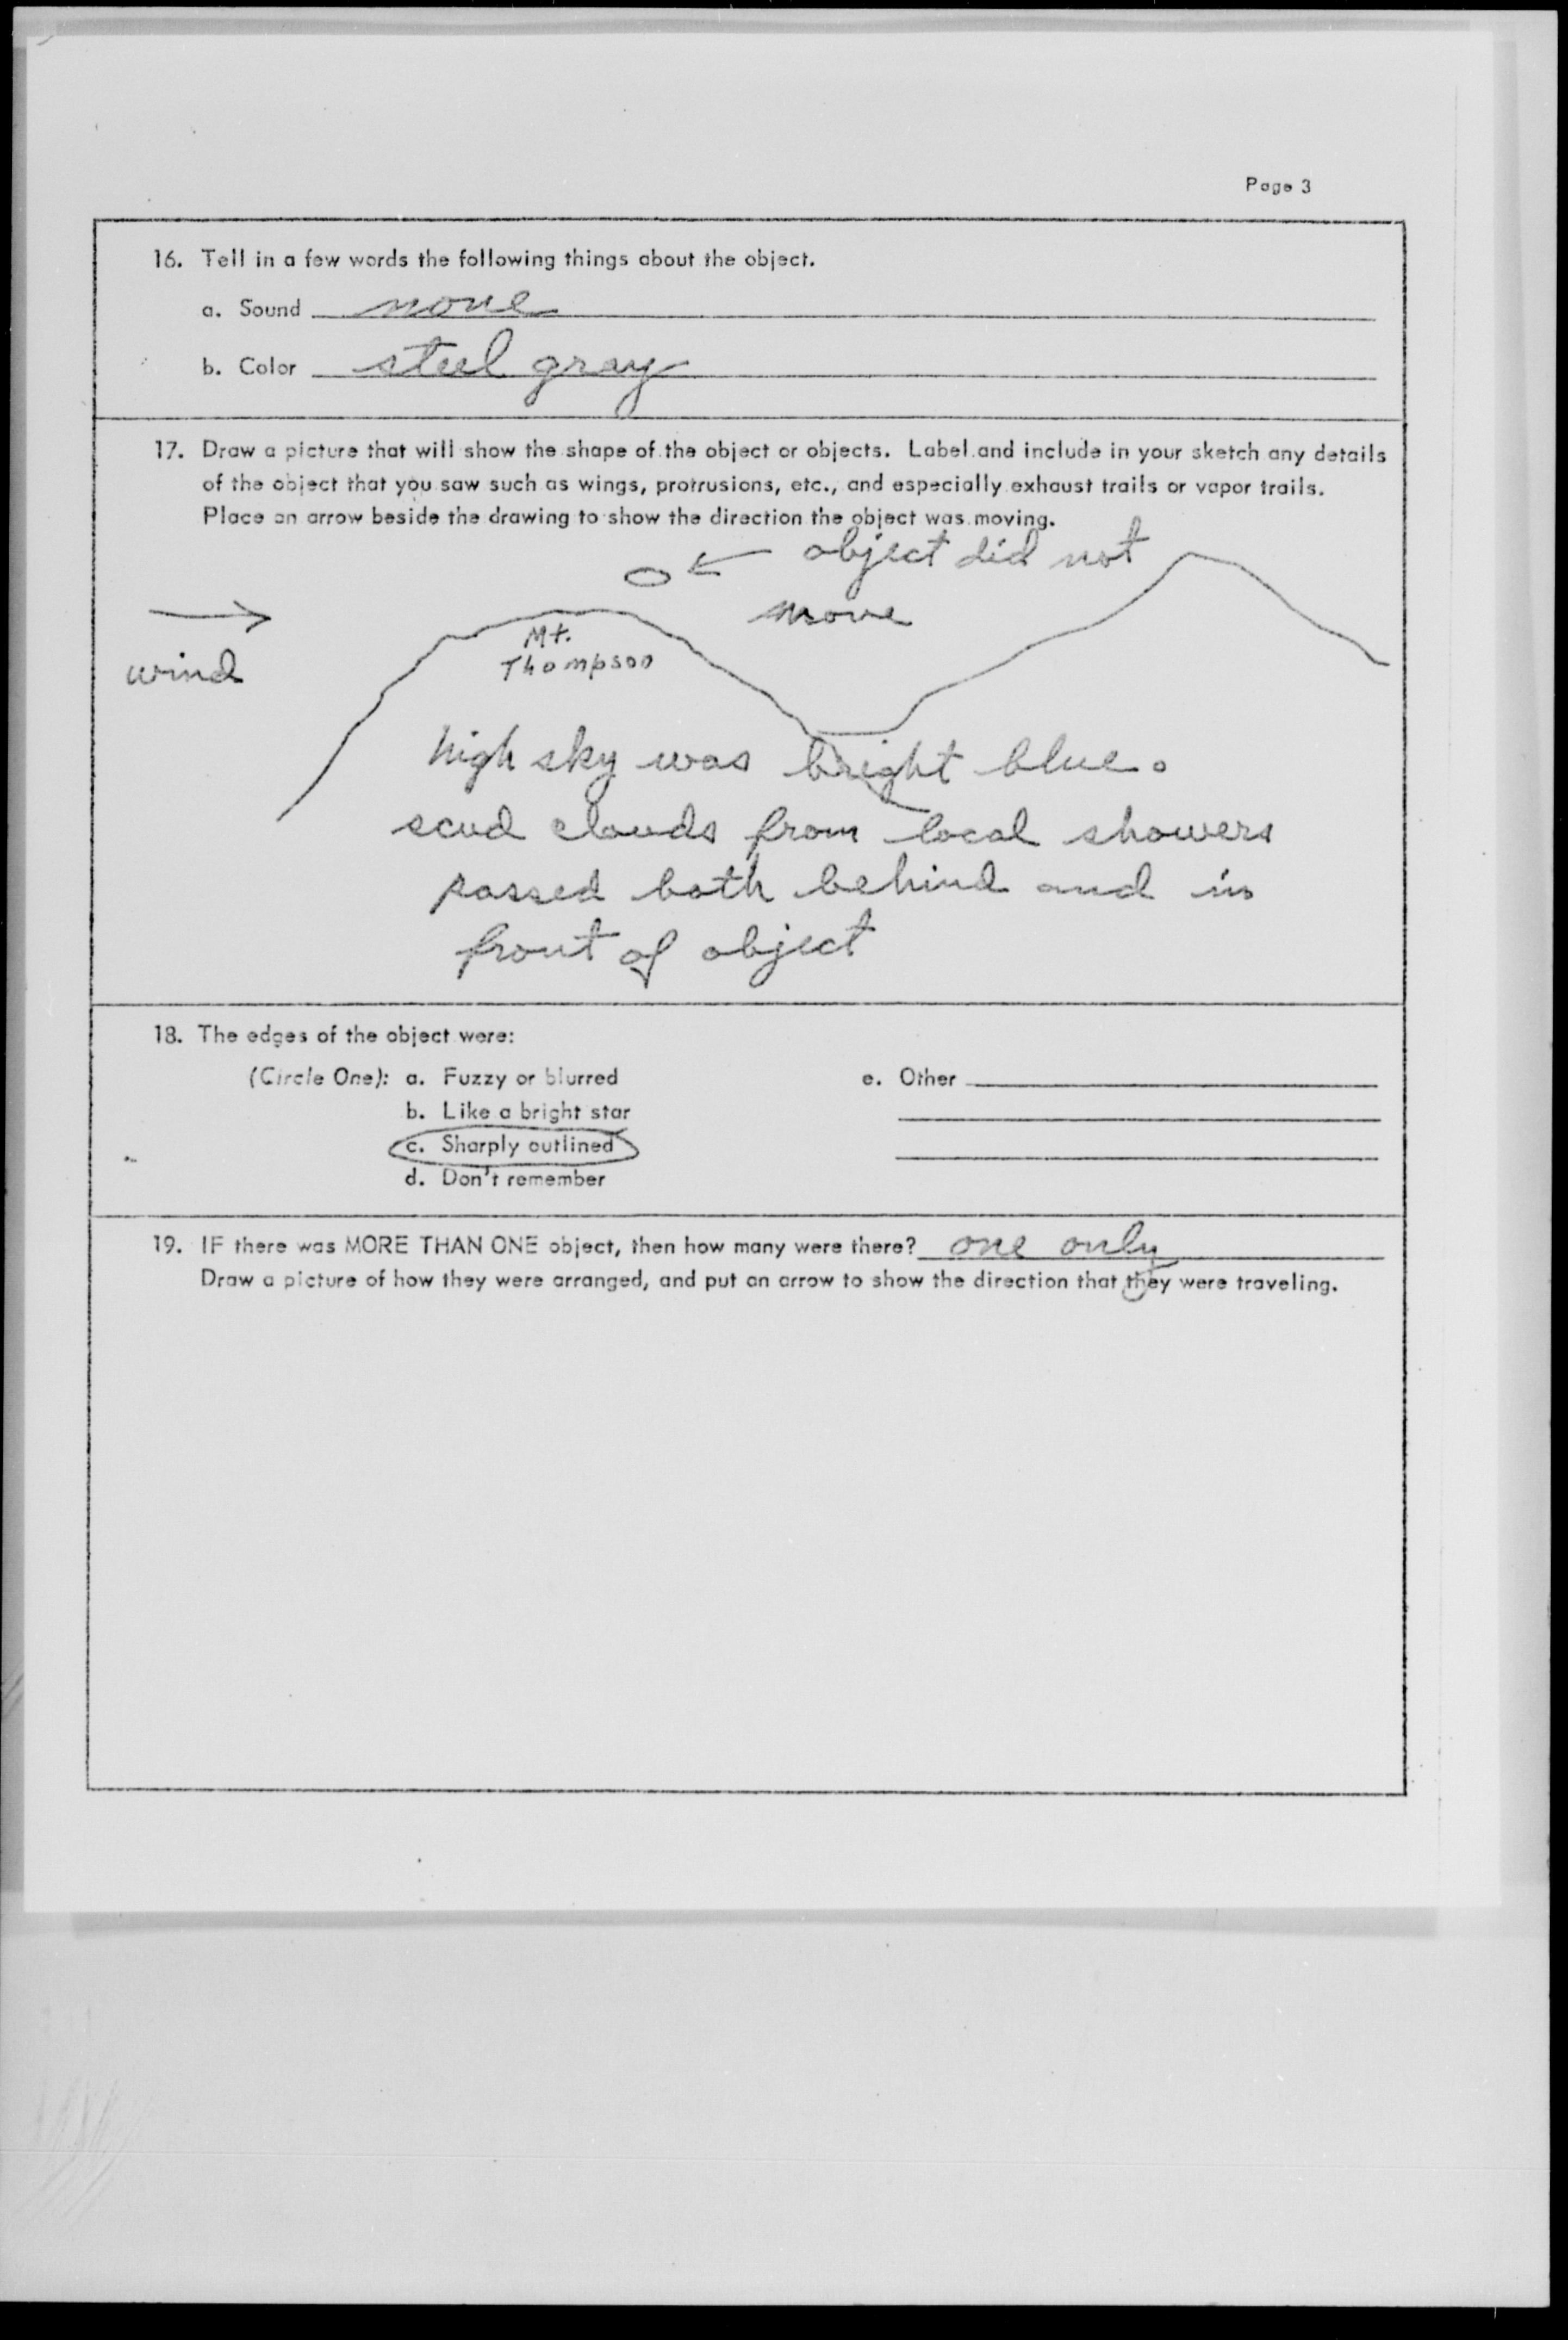 Page 3
16. Tell in a few words the following things about the object.
a. Sound none
b. Color steel gray
17. Draw a picture that will show the shape of the object or objects. Label and include in your sketch any details
of the object that you saw such as wings, protrusions, etc., and especially exhaust trails or vapor trails.
Place an arrow beside the drawing to show the direction the object was moving.
object did not
move
wind
Mt.
Thompson
high sky was bright blue.
scud clouds from local showers
passed both behind and in
front of object
18. The edges of the object were:
(Circle One): a. Fuzzy or blurred e. Other
b. Like a bright star
c. Sharply outlined
d. Don't remember
19. IF there was MORE THAN ONE object, then how many were there? one only
Draw a picture of how they were arranged, and put an arrow to show the direction that they were traveling.